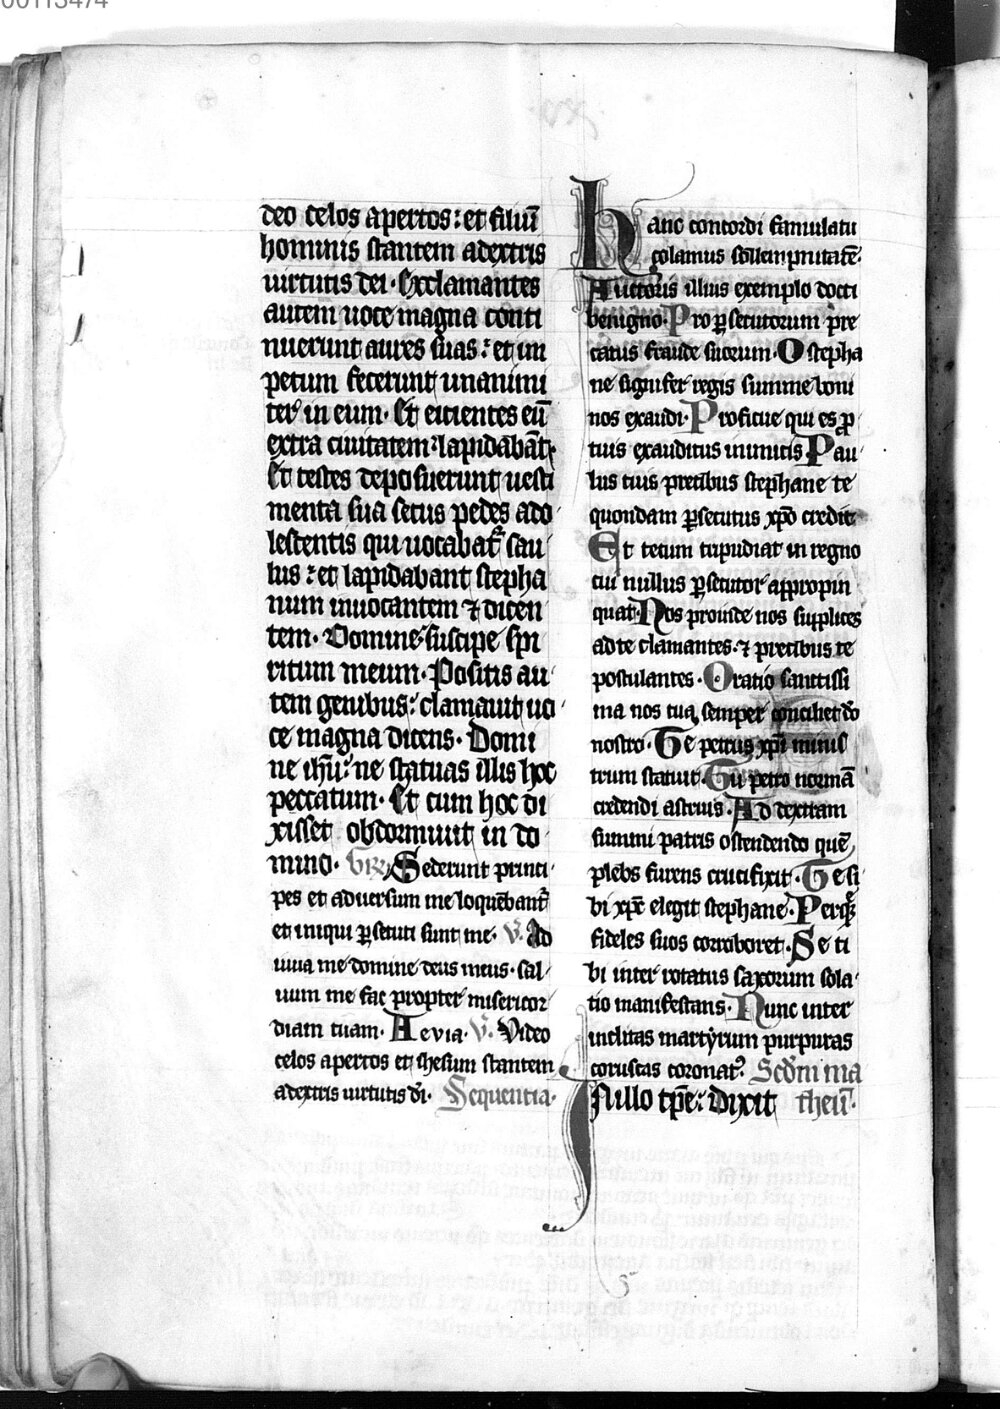 00113474
deo celos apertos: et filiū
hominis stantem adextris
uirtutis dei. Exclamantes
autem uoce magna conti
nuerunt aures suas: et im
petum fecerunt unanimi
ter in eum. Et eicientes eū
extra ciuitatem: lapidabāt.
Et testes deposuerunt uesti
menta sua secus pedes ado
lescentis qui uocabat᷑ sau
lus: et lapidabant stepha
num inuocantem ⁊ dicen
tem. Domine suscipe spi
ritum meum. Positis au
tem genibus: clamauit uo
ce magna dicens. Domi
ne ihū: ne statuas illis hoc
peccatum. Et cum hoc di
xisset obdormiuit in do
mino. Gr̄. Sederunt princi
pes et aduersum me loquebant᷑
et iniqui ꝑsecuti sunt me. V̄. Ad
iuua me domine deus meus. sal
uum me fac propter misericor
diam tuam. Aeuia. V̄. Video
celos apertos et ihesum stantem
adextris uirtutis dī. Sequentia.
Hanc concordi famulatu
colamus sollempnitatē.
Auctoris illius exemplo docti
benigno. Pro ꝑsecutorum pre
catus fraude suorum. O stepha
ne signifer regis summe boni
nos exaudi. Proficue qui es ꝓ
tuis exauditus inimicis. Pau
lus tuis precibus stephane te
quondam ꝑsecutus xp̄o credit.
Et tecum tripudiat in regno
cui nullus ꝑsecutor appropin
quat. Nos proinde nos supplices
ad te clamantes. ⁊ precibus te
postulantes. Oratio sanctissi
ma nos tua semper conciliet dō
nostro. Te petrus xp̄i minis
trum statuit. Tu petro normā
credendi astruis. Ad dextram
summi patris ostendendo quē
plebs furens crucifixit. Te si
bi xp̄e elegit stephane. Per quē
fideles suos corroboret. Se ti
bi inter rotatus saxorum sola
tio manifestans. Nunc inter
inclitas martyrum purpuras
coruscas coronat᷑. Scd̄m ma
In illo tp̄e: Dixit theū.